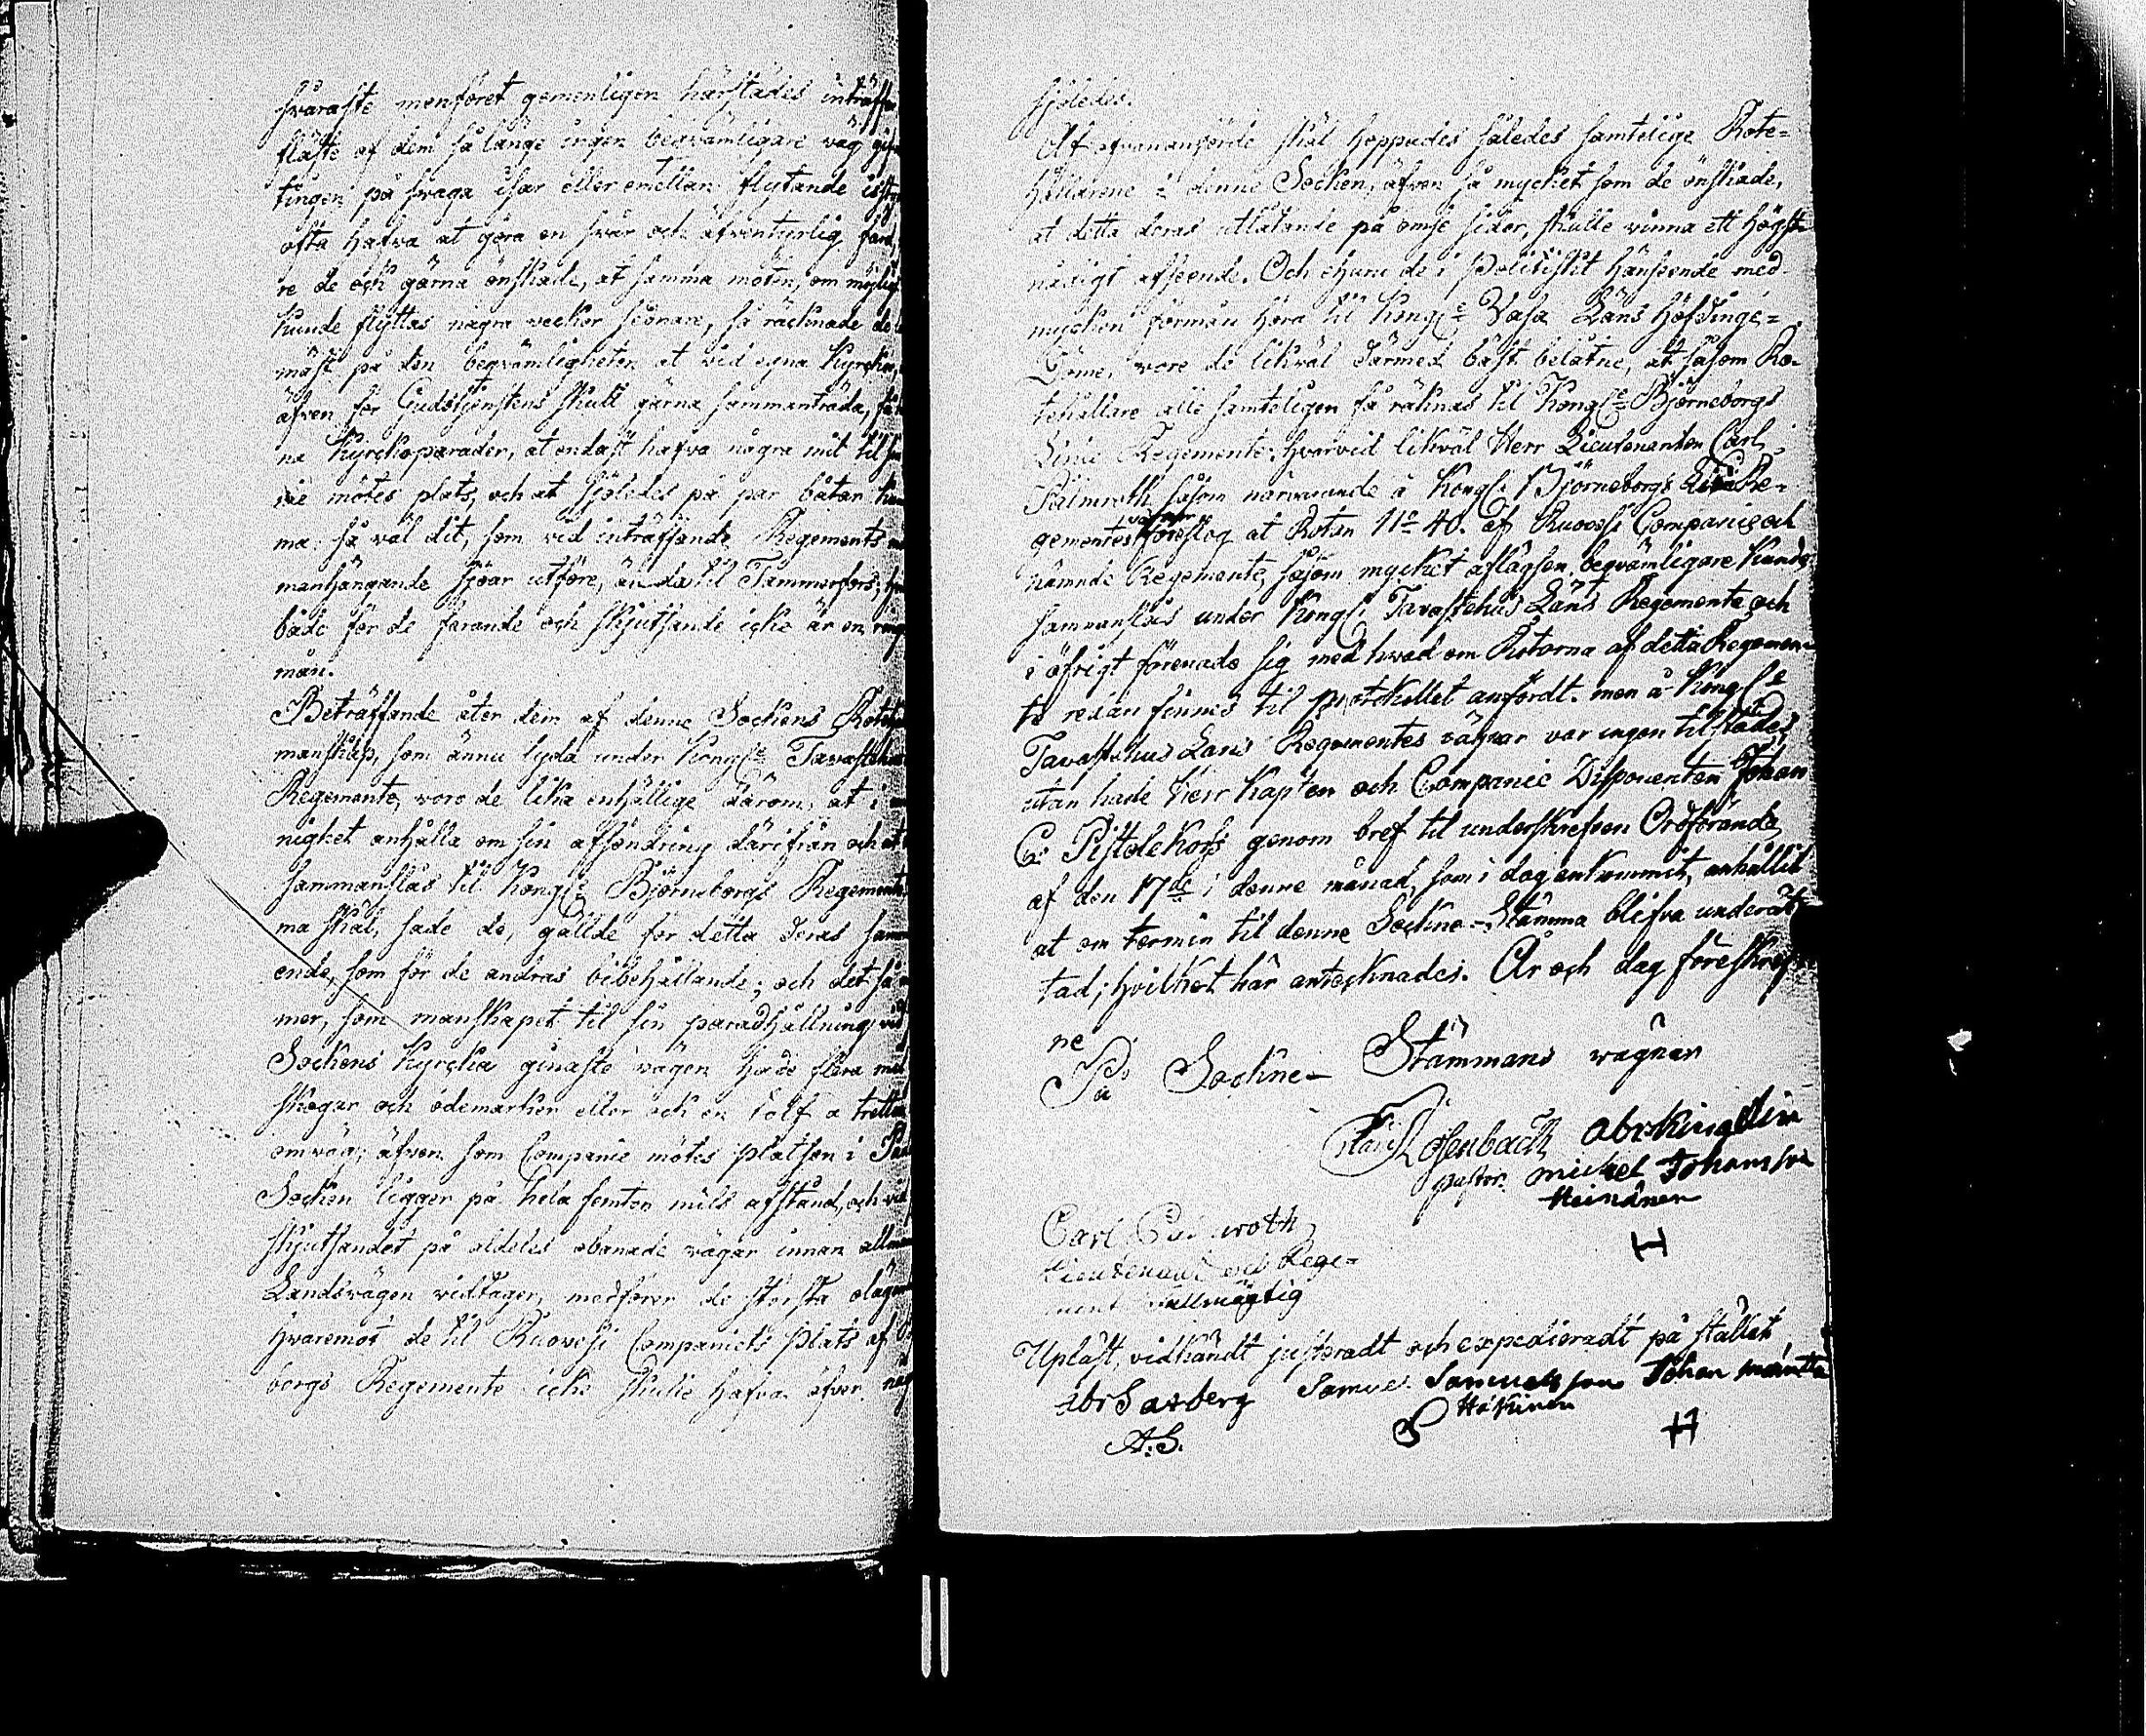 svåraste menföret gemenligen härstädes inträffa
fläste af dem så länge ingen beqvämligare väg
tingen på svaga isar eller emellan flytande
ofta hafva at göra en svår och äfventyrlig
re de ock gärna önskade, at samma möten, om möjlig
kunde flyttas några veckor senare, så räcknade de
mäst på den beqvämligheten at vid egna Kyrcko
äfven för Gudstjenstens skull gärna sammanträda,
na Kyrckoparader, at endast hafva några mil til
nie mötes plats, och at sjöledes på par båtar
ma, så väl dit, som vid inträffande Regements
manhängande sjöar utföre, ända til Tammerfors;
både för de farande och skjutsande icke är en ringa
mån.
Beträffande åter dem af denne Sockens Rote
manskap, som ännu lyda under Kongl. Tavastehus
Regemente, voro de lika enhällige därom, at i
nighet anhålla om sin afsöndring därifrån och at
sammanslås til Kongl. Björneborgs Regemente
ma skäl, sade de, gällde för detta deras
ende, som för de andras bibehållande; och det så
mer, som manskapet til sin paradhållning vid
Sockens Kyrcka ginaste vägen hade flera mil
skogar och ödemarker eller ock en tolf a tretton
omväg; äfven som Companie mötes platsen i
Socken ligger på hela femton mils afstånd, och
skjutsandet på aldeles obanade vägar innan allmänna
Landsvägen vidtager, medförer de största
hvaremot de til Ruovesi Companiets plats af
borgs Regemente icke skulle hafva öfver
sjöledes.
Af ofvananförde skäl hoppades således samtelige Rote-
hållarene i denne Socken, äfven så mycket som de önskade,
at detta deras utlåtande på ömse sidor, skulle vinna ett högst-
nådigt afseende. Och ehuru de i Politiskt hänseende med
mycken förmån höra til Kongl. Vasa Läns Höfdinge-
Döme, vore de likväl därmed bäst belåtne, at såsom Ro-
tehållare alle samteligen få räknas til Kongl. Björneborgs
Linie Regemente; hvarvid likväl Herr Lieutenanten Carl
Palmroth såsom närvarande å Kongl. Björneborgs Linie Re-
gementes vägnar föreslog at Rotan No 40. af Ruovesi Companie och
nämnde Regemente, såsom mycket aflägsen, beqvämligare kunde
sammanslås under Kongl. Tavastehus Läns Regemente och
i öfrigt förenade sig med hwad om Rotorna af detta Regemen-
te redan finnes til Protokollet anfördt. men å Kongl.
Tavastehus Läns Regementes vägnar var ingen tilstädes,
utan hade Herr Kapten och Companie Disponenten Johan
C. Pistolekors genom bref til underskrefven Ordförande
af den 17de i denne månad, som i dag ankommit, anhållit
at om termin til denne Sockne-Stämma blifva underät-
tad; hvilket här antecknades. År och dag föreskref-
ne
På Sockne-Stämmans wägnar
Rosenbach Abr Kingelin
pastor. michel Johansson
Heinänen
H
Carl Palmroth
Lieutenant vid Rege-
ment fullmägtig
Upläst, vidkändt justeradt och expedieradt på stället
Abr Saxberg Samuel Samuelsson Johan mäntta
Häkinen
A. S. S H